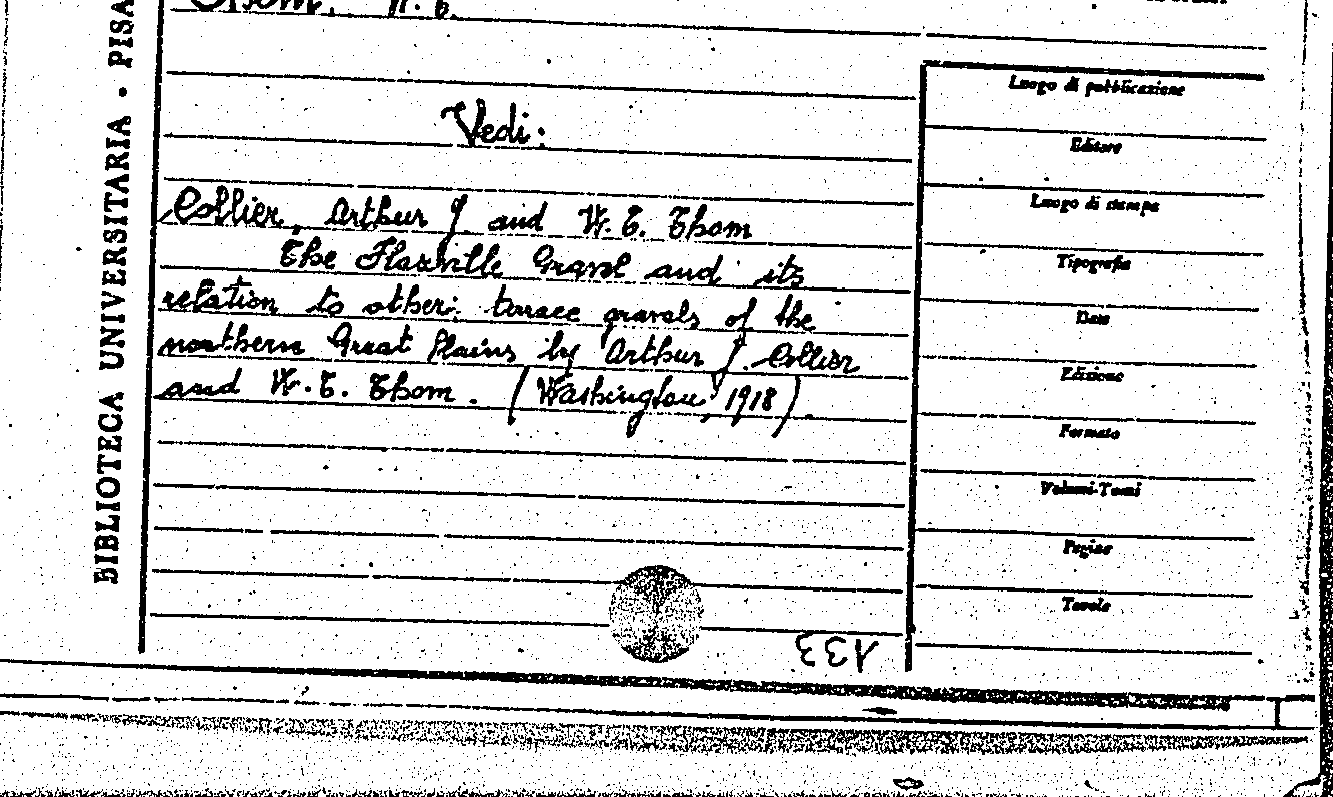 Thom, W. E.
BIBLIOTECA UNIVERSITARIA - PISA
Vedi:
Collier, Arthur J. and W. E. Thom
The Flaxville Gravel and its
relation to other: terrace gravels of the
northern Great Plains by Arthur J. Collier
and W. E. Thom. (Washington, 1918).
133
Luogo di pubblicazione
Editore
Luogo di stampa
Tipografia
Data
Edizione
Formato
Volumi-Tomi
Pagine
Tavole